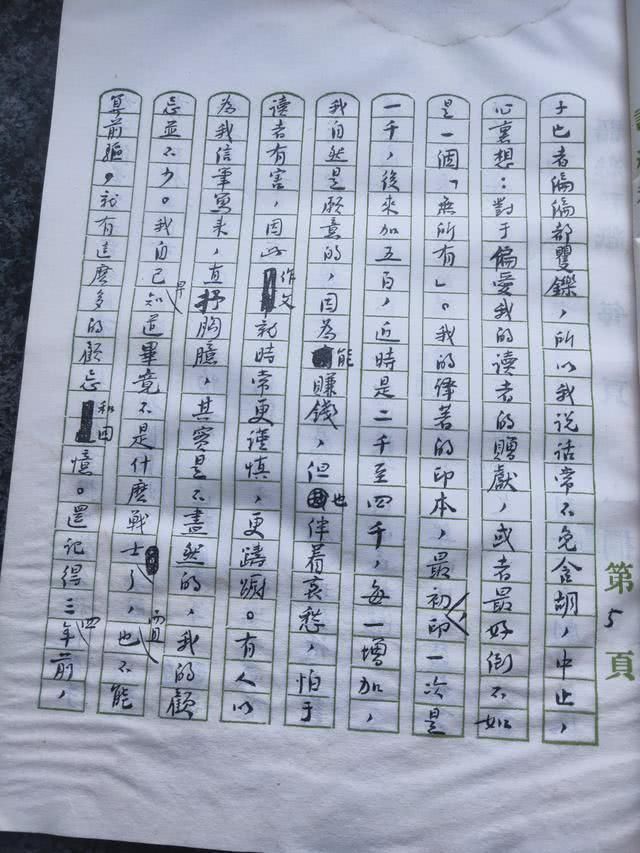 子已者偏偏都矍鑠，所以我说话常不免含胡，中止，
心裏想：對于偏愛我的读者的贈獻，或者最好倒不如
是一個「無所有」。我的译著的印本，最初印一次是
一千，後來加五百，近時是二千至四千，每一增加，
我自然是願意的，因為能賺錢，但也伴着哀愁，怕于
读者有害，因此作文就時常更谨慎，更躊躇。有人以
為我信筆寫来，直抒胸臆，其實是不盡然的，我的顧
忌並不少。我自己早知道畢竟不是什麽戰士了，而且也不能
算前驅，就有這麽多的顧忌和回憶。還记得三四年前，
第5頁